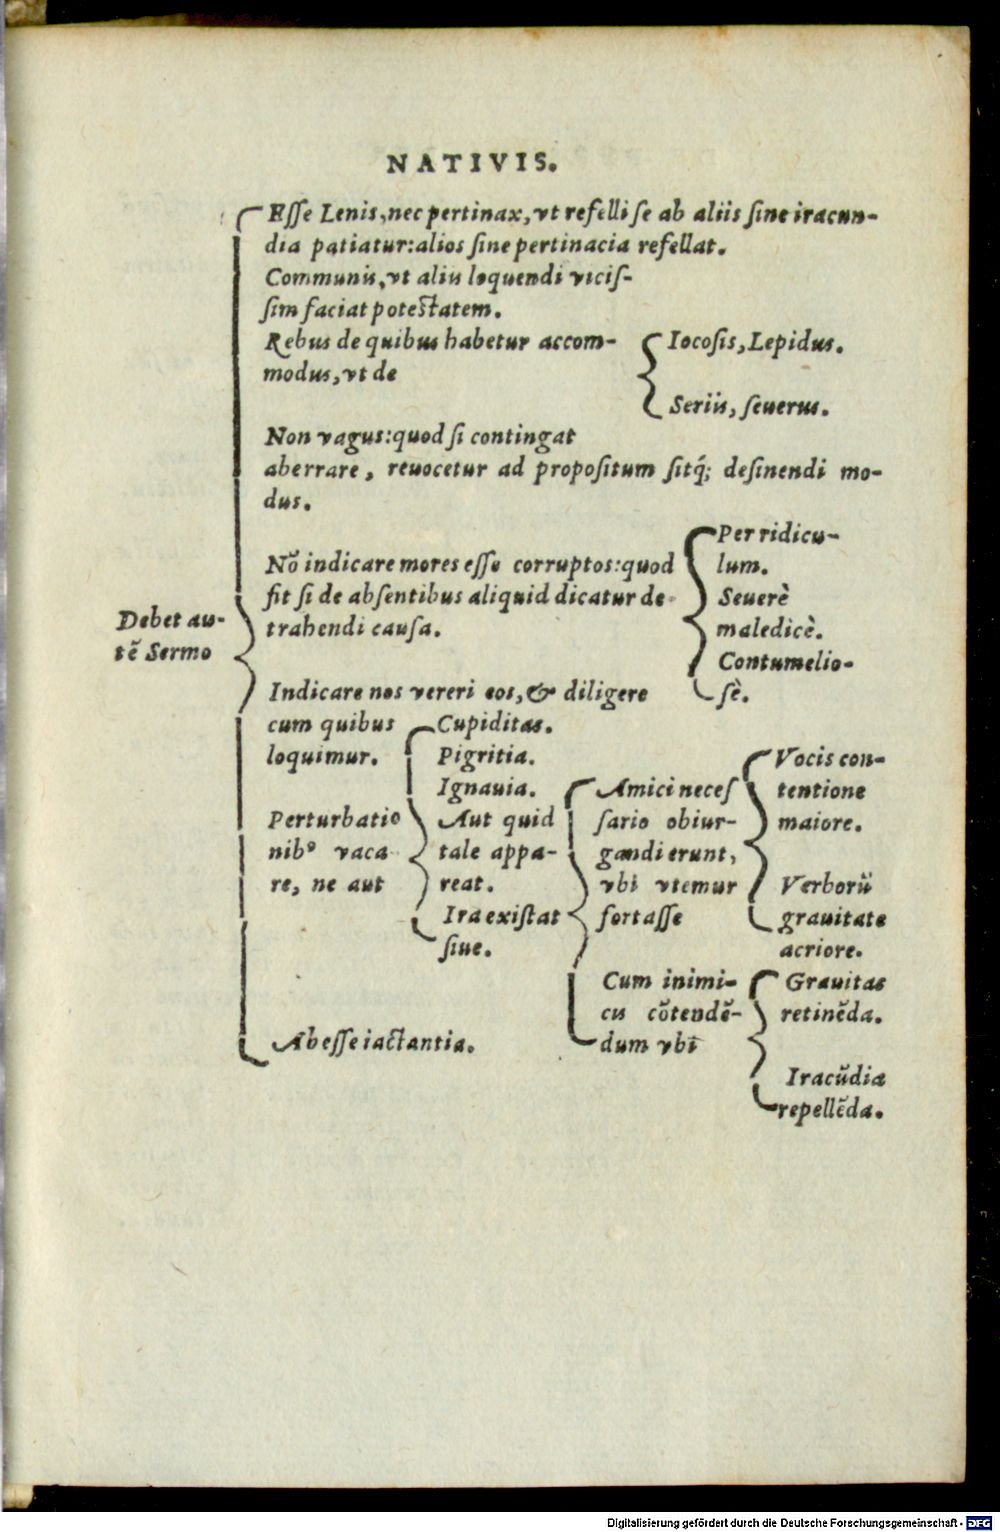 NATIVIS.
Esse Lenis, nec pertinax, vt refelli se ab aliis sine iracun-
dia patiatur: alios sine pertinacia refellat.
Communis, vt aliis loquendi vicis-
sim faciat potestatem.
Rebus de quibus habetur accom-
modus, vt de
Iocosis, Lepidus.
Seriis, seuerus.
Non vagus: quod si contingat
aberrare, reuocetur ad propositum sitq́; desinendi mo-
dus.
Debet au-
tẽ Sermo
Nõ indicare mores esse corruptos: quod
fit si de absentibus aliquid dicatur de-
trahendi causa.
Per ridicu-
lum.
Seuerè
maledicè.
Contumelio-
sè.
Indicare nos vereri eos, & diligere
cum quibus
loquimur.
Perturbatio
nibꝰ vaca
re, ne aut
Cupiditas.
Pigritia.
Ignauia.
Aut quid
tale appa-
reat.
Ira existat
siue.
Amici neces
sario obiur-
gandi erunt,
vbi vtemur
fortasse
Vocis con-
tentione
maiore.
Verborũ
grauitate
acriore.
Cum inimi-
cis cõtendẽ-
dum vbi
Grauitas
retinẽda.
Iracũdia
repellẽda.
Abesse iactantia.
Digitalisierung gefördert durch die Deutsche Forschungsgemeinschaft - DFG